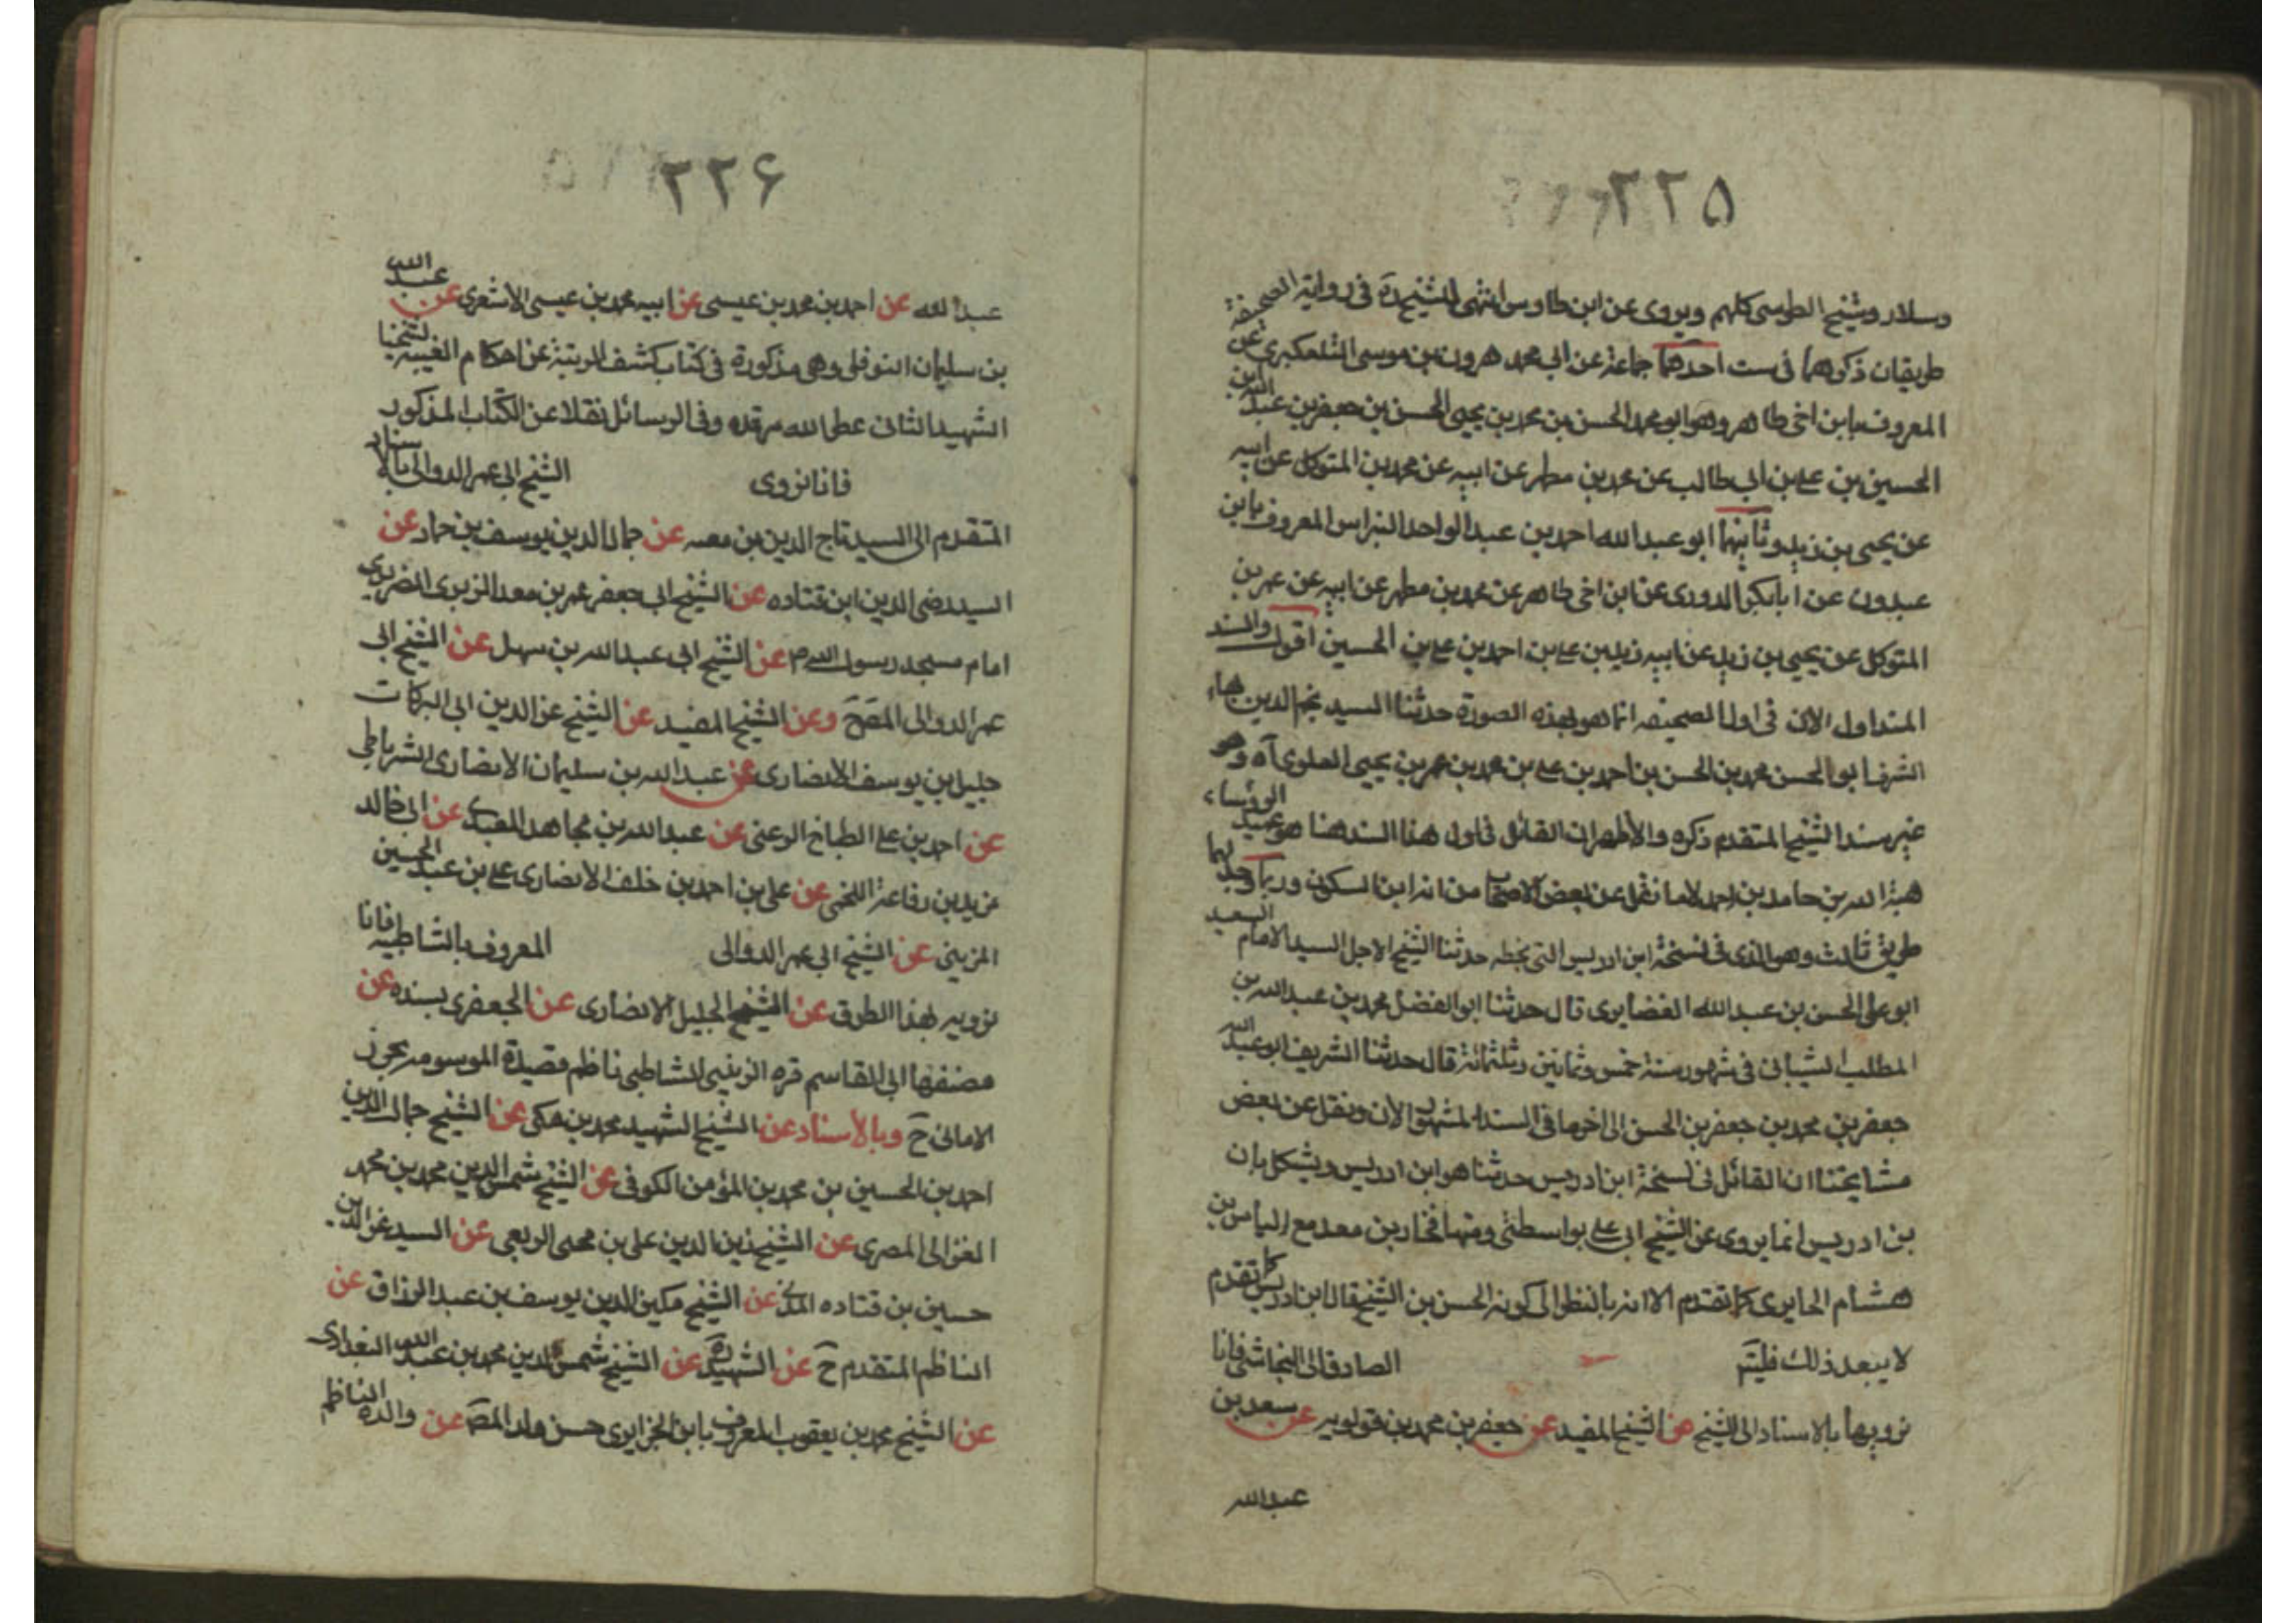 ٢٢٥
وسلار وشيخ الطوسى كلهم ويروى عن ابن طاوس انتهى للشيخ ره فى رواية الصحيفة
طريقان ذكرهما فى ست احدهما جماعة عن ابى محمد هرون بن موسى التلعكبرى عن
المعروف بابن اخى طاهر وهو ابو محمد الحسن بن محمد بن يحيى الحسن بن جعفر بن عبد الله بن
الحسين بن على بن ابى طالب عن محمد بن مطهر عن ابيه عن محمد بن المتوكل عن ابيه
عن يحيى بن زيد وثانيهما ابو عبد الله احمد بن عبد الواحد البزاس المعروف بابن
عبدون عن ابابكر الدورى عن ابن اخى طاهر عن محمد بن مطهر عن ابيه عن عمر بن
المتوكل عن يحيى بن زيد عن ابيه زيد بن على بن احمد بن على بن الحسين اقول والسند
المتداول الان فى اول الصحيفه انما هو بهذه الصورة حدثنا السيد نجم الدين بهاء
الشرف ابو الحسن محمد بن الحسن بن احمد بن على بن محمد بن عمر بن يحيى العلوى آه وهو
غير سند الشيخ المتقدم ذكره والاظهر ان القائل فى اول هذا السند هنا هو عميد الرؤساء
هبة الله بن حامد بن احمد لاما نقل عن بعض الاصحاب من انه ابن السكون وربما وجد لها
طريق ثالث وهو الذى فى نسخة ابن ادريس التى بخطه حدثنا الشيخ الاجل السيد الامام السعيد
ابو على الحسن بن عبد الله الغضايرى قال حدثنا ابو الفضل محمد بن عبد الله بن
المطلب الشيبانى فى شهور سنة خمس وثمانين وثلثمائة قال حدثنا الشريف ابو عبد الله
جعفر بن محمد بن جعفر بن الحسن الى اخرها فى السند المشهور الان ونقل عن بعض
مشايخنا ان القائل فى نسخة ابن ادريس حدثنا هو ابن ادريس ويشكل بان
بن ادريس انما يروى عن الشيخ ابى على بواسطتى ومنها فخار بن معد مع الياس بن
هشام الحايرى كما تقدم الا انه بالنظر الى كونه الحسن بن الشيخ قال ابن ادريس كما تقدم
لا يبعد ذلك فليتم الصادق الى النجاشى فانا
نرويها بالاسناد الى الشيخ عن الشيخ المفيد عن جعفر بن محمد بن قولويه عن سعد بن
عبد الله
٢٢۶
عبد الله عن احمد بن محمد بن عيسى عن ابيه محمد بن عيسى الاشعرى عن عبد الله
بن سليمان النوفلى وهى مذكورة فى كتاب كشف الريبة عن احكام الغيبه لشيخنا
الشهيد الثانى عطر الله مرقده وفى الوسائل نقلا عن الكتاب المذكور
فانا نروى الشيخ ابى عمر الدوالى بالاسناد
المتقدم الى السيد تاج الدين بن معيه عن جمال الدين يوسف بن حماد عن
السيد رضى الدين ابن قتاده عن الشيخ ابى جعفر عمر بن معد الزبرى الضريرى
امام مسجد رسول الله ص عن الشيخ ابى عبد الله بن سهل عن الشيخ ابى
عمر الدوالى المصح وعن الشيخ المفيد عن الشيخ عز الدين ابى البركات
جليل بن يوسف الانصارى عن عبد الله بن سليمان الانصارى الشرياطى
عن احمد بن على الطباخ الرعنى عن عبد الله بن مجاهد العبدى عن ابى خالد
مزيد بن رفاعة اللخمى عن على بن احمد بن خلف الانصارى على بن عبد الحسين
المزينى عن الشيخ ابى عمر الدوالى المعروف بالشاطبيه فانا
نرويه بهذا الطرق عن الشيخ الجليل الانصارى عن الجعفرى بسنده عن
مصنفها ابى القاسم قره الزينبى الشاطبى ناظم قصيدة الموسومه بحرز
الامانى ح وبالاسناد عن الشيخ الشهيد محمد بن مكى عن الشيخ جمال الدين
احمد بن الحسين بن محمد بن المؤمن الكوفى عن الشيخ شمس الدين محمد بن محمد
الغزالى المصرى عن الشيخ زين الدين على بن محيى الربعى عن السيد عز الدين
حسين بن قتاده المدنى عن الشيخ مكين الدين يوسف بن عبد الرزاق عن
الناظم المتقدم ح عن الشهيد ره عن الشيخ شمس الدين محمد بن عبد الله البغدادى
عن الشيخ محمد بن يعقوب المعروف بابن الجزايرى حسن ولد المص عن والده الناظم